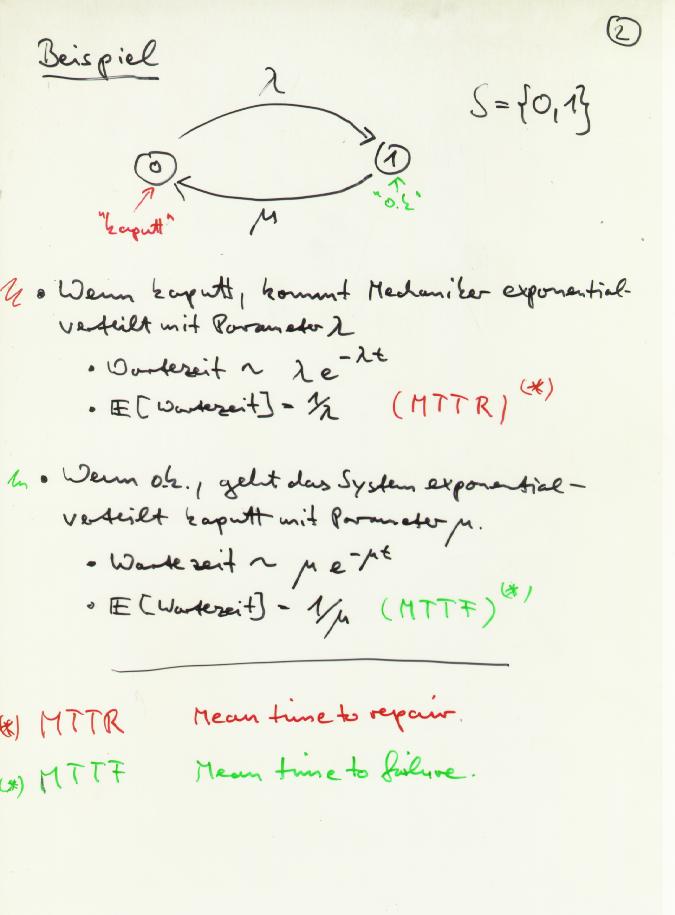 2
Beispiel
λ
S = {0,1}
0
1
"kaputt"
μ
"o.k"
• Wenn kaputt, kommt Mechaniker exponential-
verteilt mit Parameter λ
• Wartezeit ~ λ e^{-λt}
• E [Wartezeit] = 1/λ (MTTR)^{(*)}
• Wenn o.k., geht das System exponential-
verteilt kaputt mit Parameter μ.
• Wartezeit ~ μ e^{-μt}
• E [Wartezeit] = 1/μ (MTTF)^{(*)}
(*) MTTR Mean time to repair.
(*) MTTF Mean time to failure.